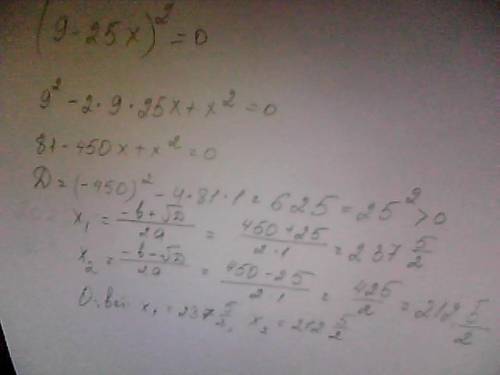 (9-25x)²=0
9²-2·9·25x+x²=0
81-450x+x²=0
D=(-450)²-4·81·1=625=25²>0
x₁=(-b+√D)/2a=(450+25)/2·1=237 5/2
x₂=(-b-√D)/2a=(450-25)/2·1=425/2=212 5/2
x₁=237 5/2, x₂=212 5/2